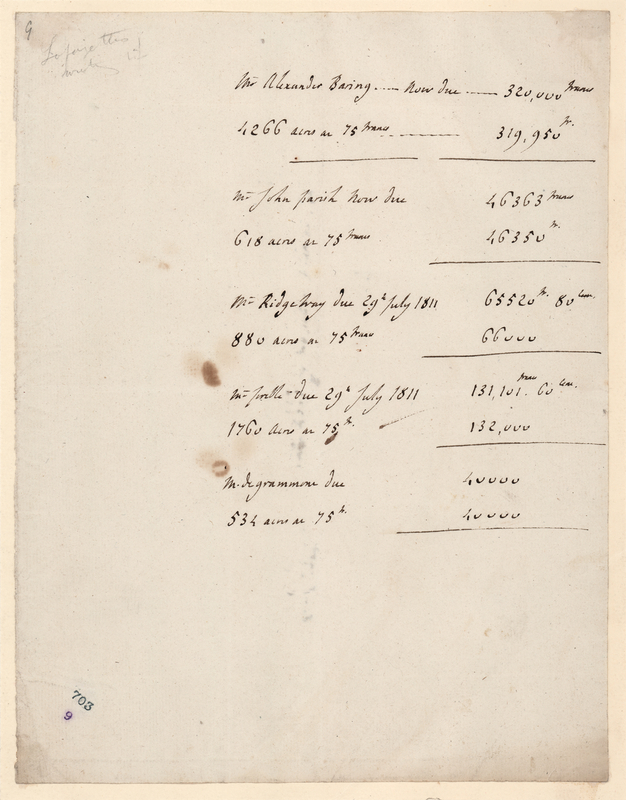 9
Lafayette's
Mr Alexander Baring .... Now due .... 320,000 francs
4266 acres at 75 francs .... 319,950 fr.
Mr John parish Now due 46363 francs
618 acres at 75 francs 46350 fr.
Mr Ridgeway due 29h July 1811 65520 fr. 80 Cen.
880 acres at 75 franc 66000
Mr due 29h July 1811 131,101 franc 60 Cen.
1760 Acres at 75 fr. 132,000
M. de grammont due 40000
534 acres at 75 fr. 40000
703
9